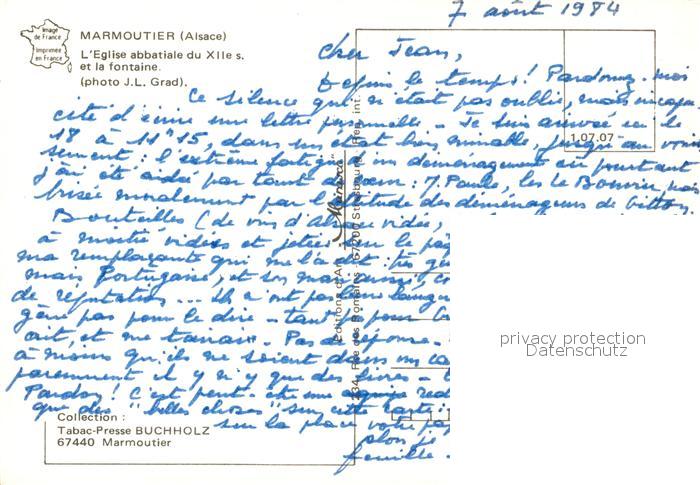 Image
de France
Imprimée
en France
MARMOUTIER (Alsace)
L'Eglise abbatiale du XIIe s.
et la fontaine.
(photo J.L. Grad).
7 août 1984
Cher Jean,
Depuis le temps! Pardonnez-moi
Ce silence qui n'était pas oublié, mais incapa
cité d'écrire une lettre personnelle - Je suis arrivée ici le
18 à 11h15, dans un état bien minable, jusqu'au vomis
sement: l'extrême fatigue du déménagement où pourtant
j'ai été aidée par tant de
brisée moralement par l'attitude des déménageurs de
Bouteilles (de vin d'Alsace vidée,
à moitié vides et jetées sur le pa
ma remplaçante qui me l'a dit: très ge
mais Portugaise, et son mari aussi, co
de réputation... Ils n'ont pas dans
gêne pas pour le dire - tant pour
ait, et me taisais. Pas de réponse -
à moins qu'ils ne soient dans un ca
paremment il y n'y que des livres -
Pardon! C'est peut-être une
que des "belles choses" sur cette carte:
sur la place votre pa
alors je
feuille.
Collection :
Tabac-Presse BUCHHOLZ
67440 Marmoutier
Editions d'Art
Rue des Romains 67200 Strasbourg. Rep. int.
1.07.07
privacy protection
Datenschutz